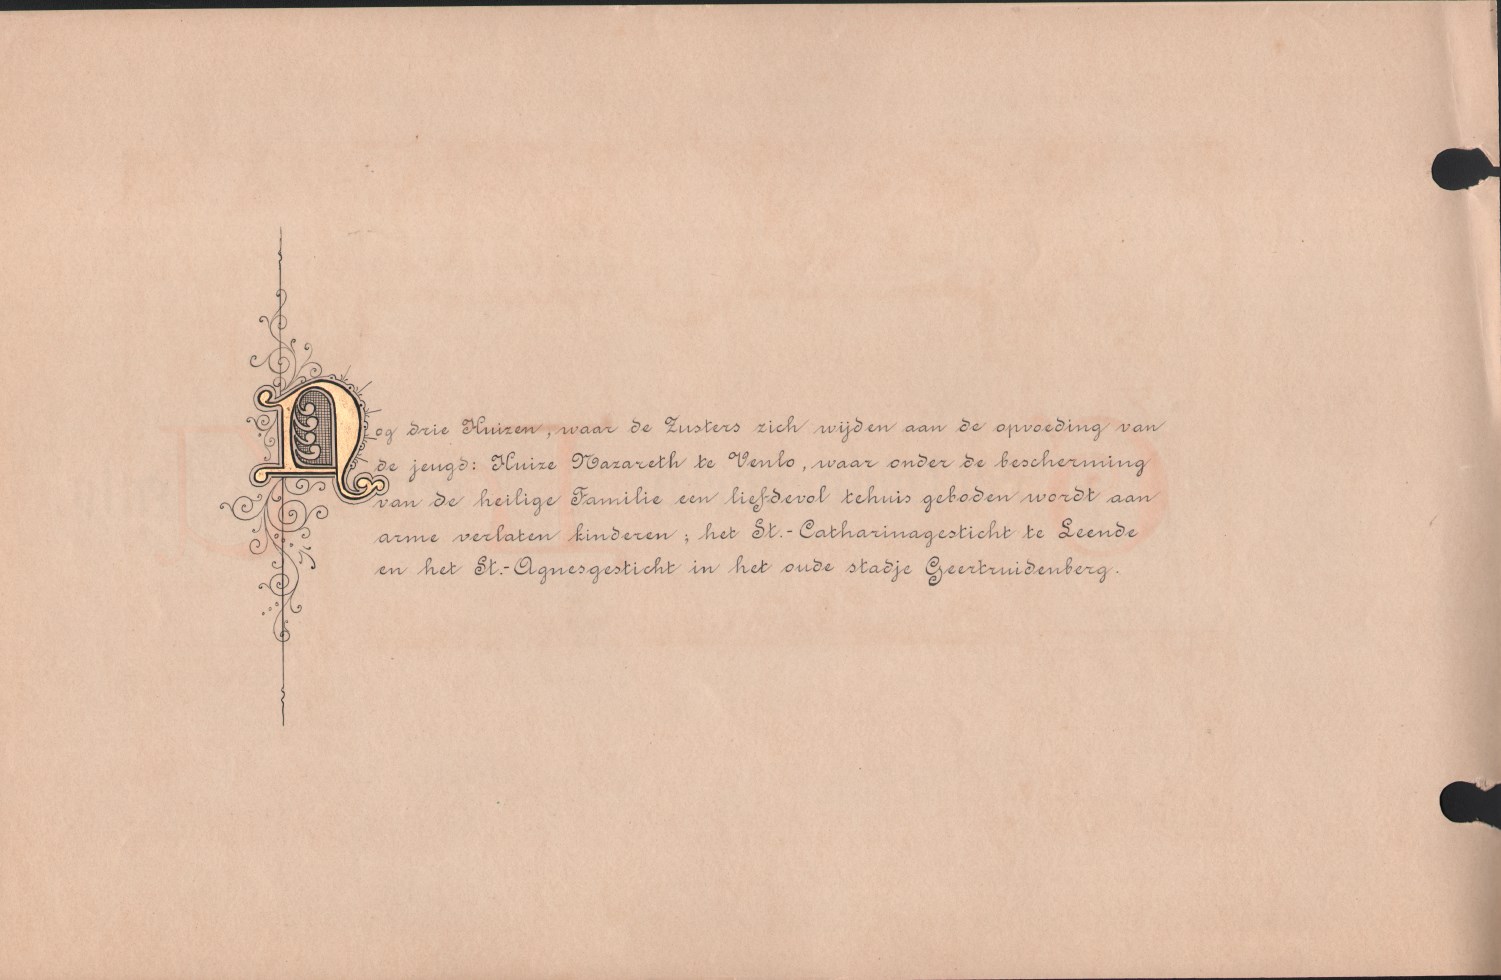 Nog drie Huizen, waar de Zusters zich wijden aan de opvoeding van
de jeugd: Huize Nazareth te Venlo, waar onder de bescherming
van de heilige Familie een liefdevol tehuis geboden wordt aan
arme verlaten kinderen; het St.-Catharinagesticht te Leende
en het St.-Agnesgesticht in het oude stadje Geertruidenberg.